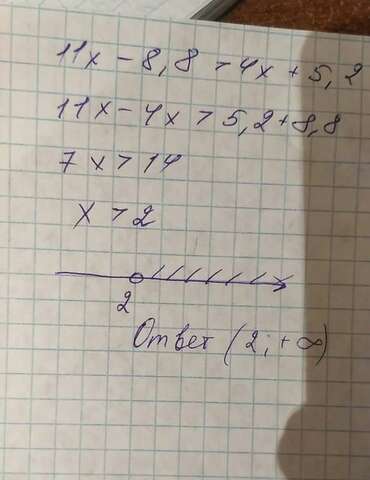 11x - 8,8 > 4x + 5,2
11x - 4x > 5,2 + 8,8
7x > 14
x > 2
2
Ответ (2; + ∞)